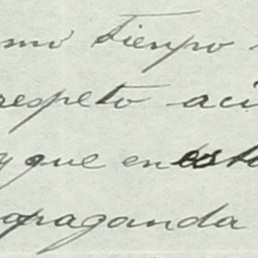 smo tienpo
respeto aci
y que en esto
opaganda